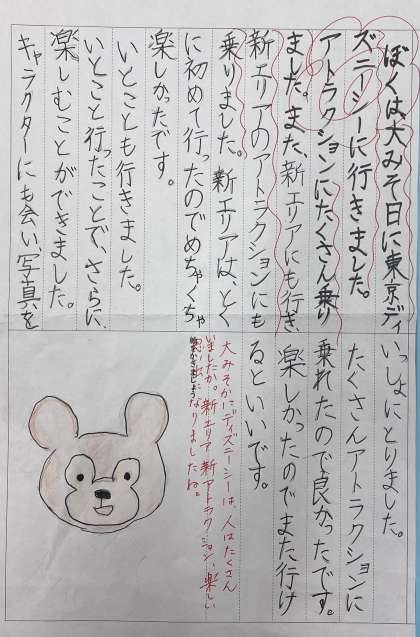 ぼくは、大みそ日に東京ディ
ズニーシーに行きました。
アトラクションにたくさん乗り
ました。また、新エリアにも行き、
新エリアのアトラクションにも
乗りました。新エリアは、とく
に初めて行ったのでめちゃくちゃ
楽しかったです。
いとことも行きました。
いとこと行ったことで、さらに、
楽しむことができました。
キャラクターにも会い、写真を
いっしょにとりました。
たくさんアトラクションに
乗れたので良かったです。
楽しかったのでまた行け
るといいです。
大みそかにディズニーシーは、人はたくさん
いましたか。新エリア、新アトラクション、楽しい
思い出になりましたね。